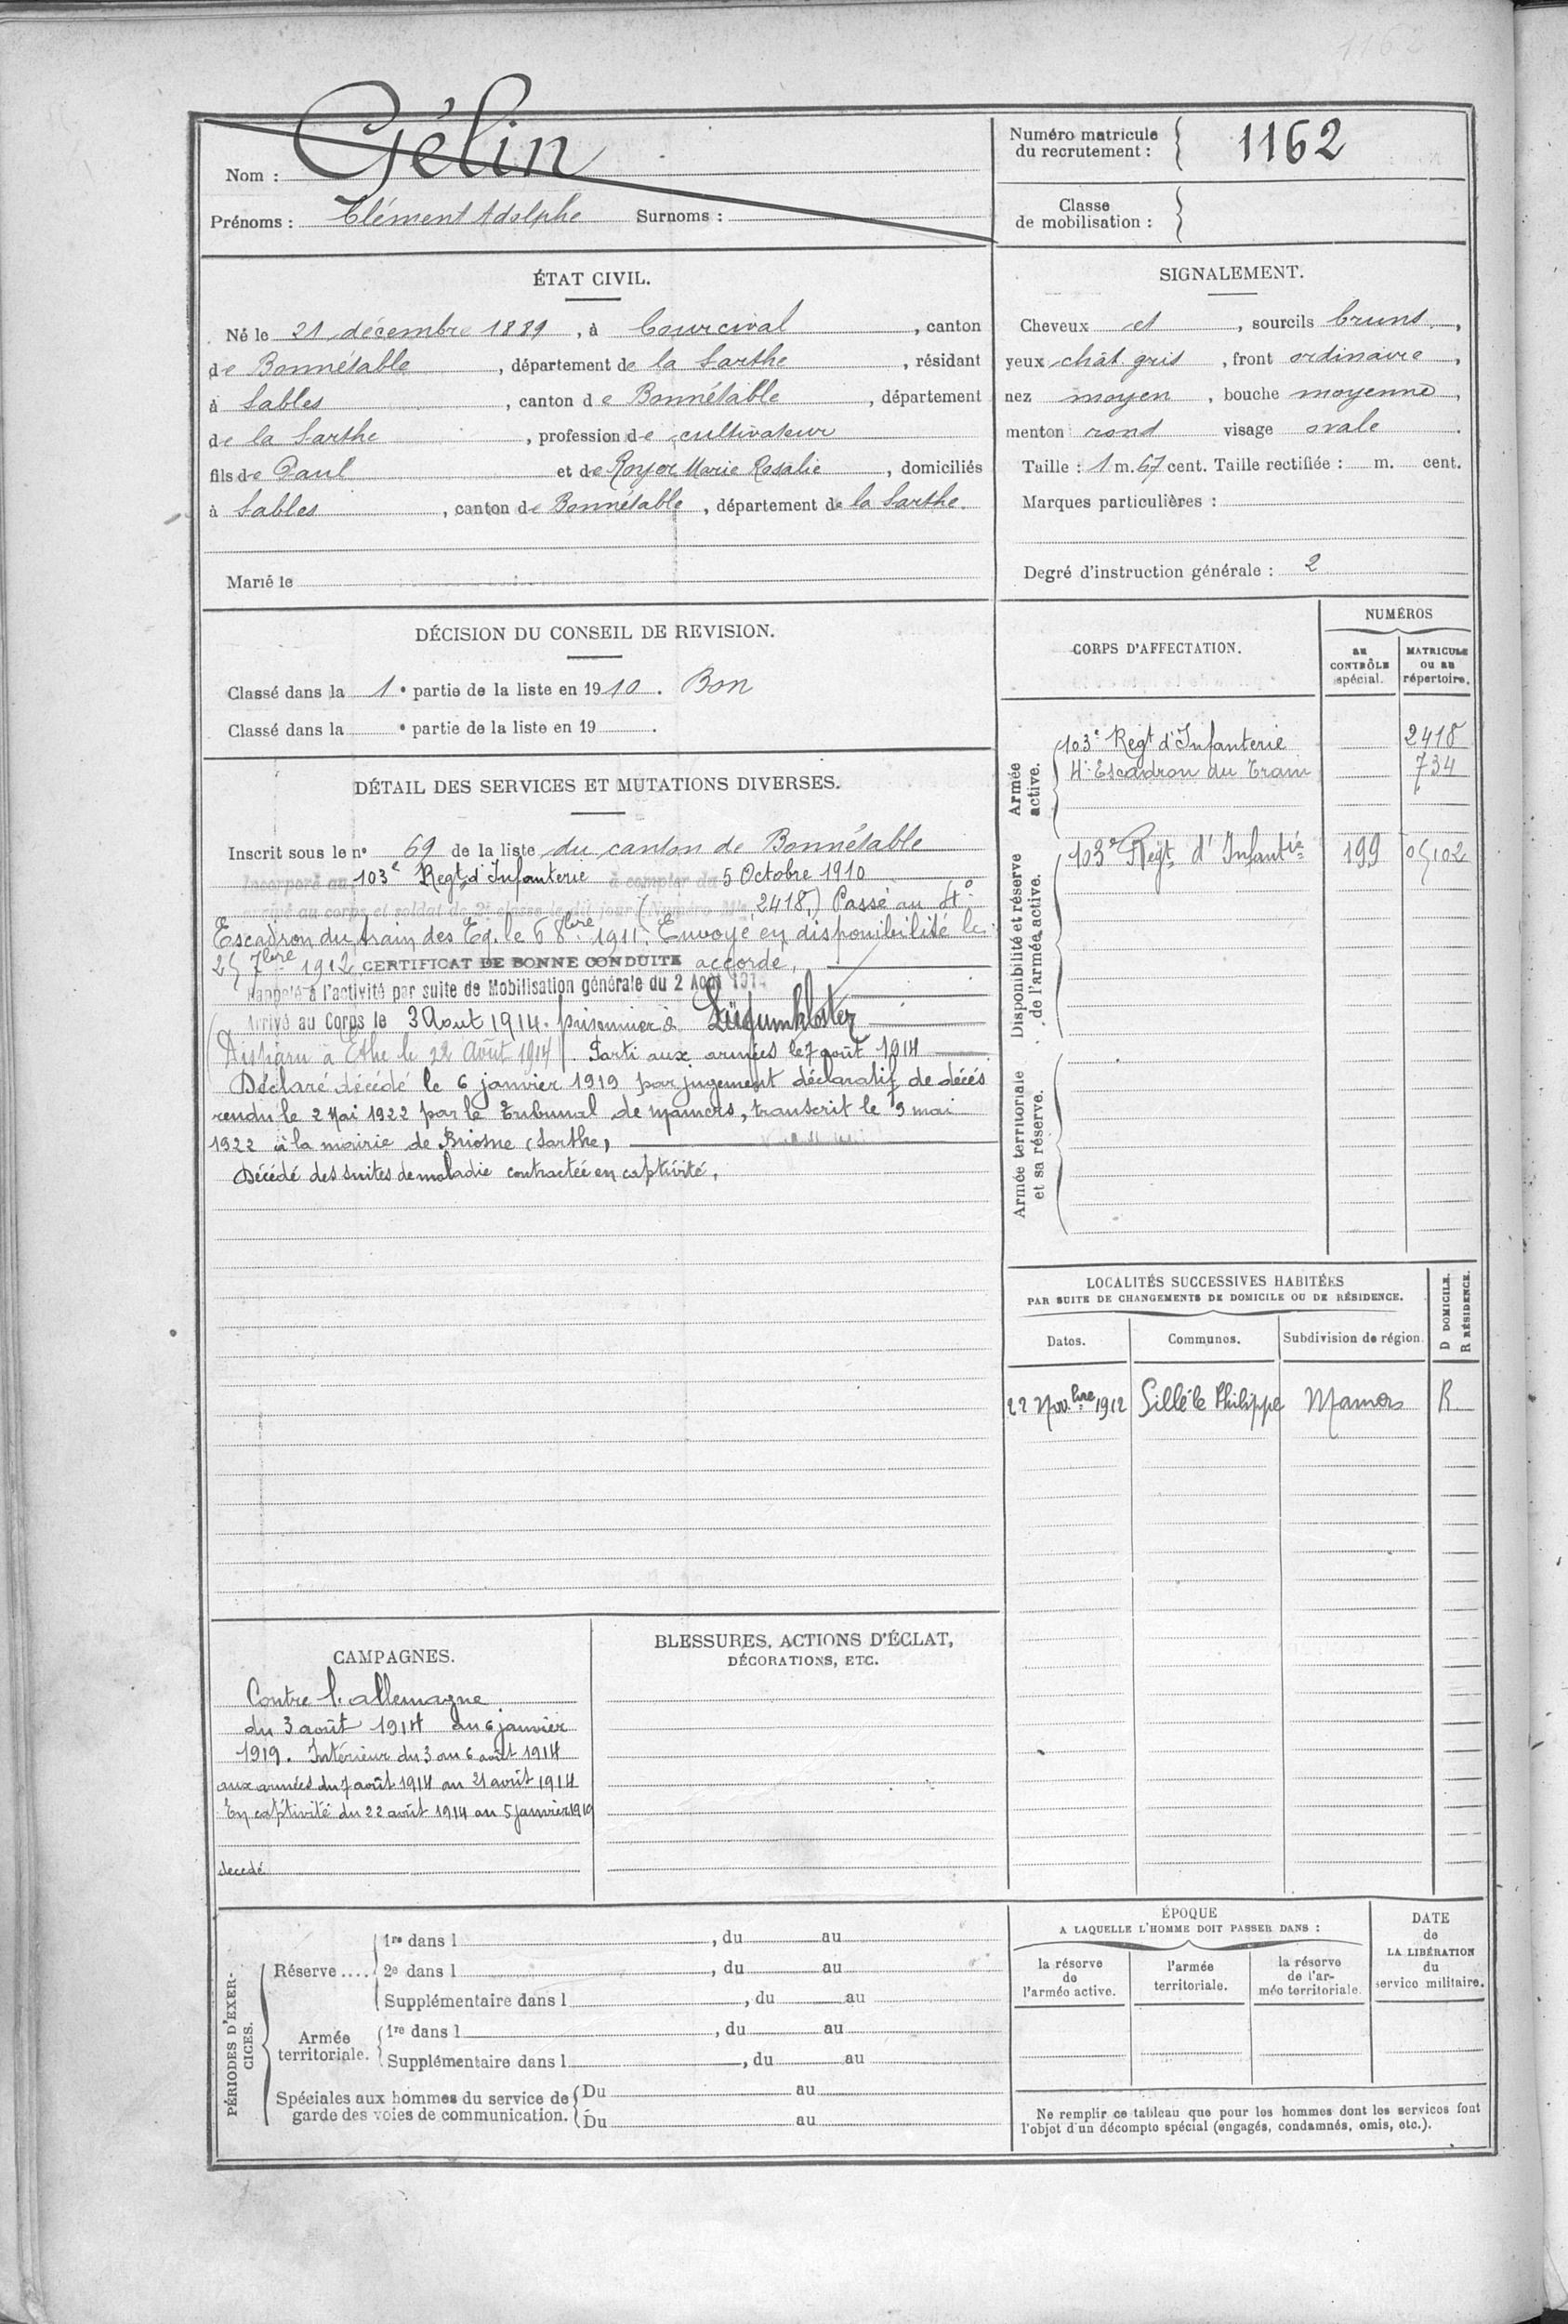 1162
Nom : Gélin
Prénoms : Clément Adolphe Surnoms :
Numéro matricule du recrutement : 1162
Classe de mobilisation :
ÉTAT CIVIL.
Né le 21 décembre 1889, à Courcival, canton
de Bonnétable, département de la Sarthe, résidant
à Sables, canton de Bonnétable, département
de la Sarthe, profession de cultivateur
fils de Paul et de Royer Marie Rosalie, domiciliés
à Sables, canton de Bonnétable, département de la Sarthe.
Marié le
SIGNALEMENT.
Cheveux et, sourcils bruns,
yeux chât. gris, front ordinaire,
nez moyen, bouche moyenne,
menton rond visage ovale.
Taille : 1 m. 67 cent. Taille rectifiée : m. cent.
Marques particulières :
Degré d'instruction générale : 2
DÉCISION DU CONSEIL DE REVISION.
Classé dans la 1e partie de la liste en 1910. Bon
Classé dans la e partie de la liste en 19 .
DÉTAIL DES SERVICES ET MUTATIONS DIVERSES.
Inscrit sous le n° 69 de la liste du canton de Bonnétable
Incorporé au 103e Regt d'Infanterie à compter du 5 Octobre 1910
arrivé au corps et soldat de 2e classe le dit jour (Numéro Mle 2418.) Passé au 4e
Escadron du train des Eq. le 6 8bre 1911. Envoyé en disponibilité le
25 7bre 1912 CERTIFICAT DE BONNE CONDUITE accordé,
Rappelé à l'activité par suite de Mobilisation générale du 2 Août 1914
Arrivé au Corps le 3 Aout 1914. prisonnier à Lügumkloster
(Disparu à Ethe le 22 Août 1914). Parti aux armées le 7 août 1914
Déclaré décédé le 6 janvier 1919 par jugement déclaratif de décés
rendu le 2 Mai 1922 par le Tribunal de Mamers, transcrit le 9 mai
1922 à la mairie de Briosne (Sarthe)
Décédé des suites de maladie contractée en captivité.
CORPS D'AFFECTATION.
NUMÉROS
au CONTRÔLE spécial.
MATRICULE ou au répertoire.
Armée active.
103e Regt d'Infanterie 2418
4e Escadron du Train 734
Disponibilité et réserve de l'armée active.
103e Regt d'Infantie 199 05102
Armée territoriale et sa réserve.
LOCALITÉS SUCCESSIVES HABITÉES
PAR SUITE DE CHANGEMENTS DE DOMICILE OU DE RÉSIDENCE.
Dates. Communes. Subdivision de région. D DOMICILE. R RÉSIDENCE.
22 Nov.bre 1912 Sillé le Philippe Mamers R.
CAMPAGNES.
Contre l'allemagne
du 3 août 1914 au 6 janvier
1919. Intérieur du 3 au 6 août 1914
aux armées du 7 août 1914 au 21 août 1914
En captivité du 22 août 1914 au 5 janvier 1919
decedé
BLESSURES, ACTIONS D'ÉCLAT,
DÉCORATIONS, ETC.
PÉRIODES D'EXERCICES.
Réserve....
1re dans l , du au
2e dans l , du au
Supplémentaire dans l , du au
Armée territoriale.
1re dans l , du au
Supplémentaire dans l , du au
Spéciales aux hommes du service de garde des voies de communication.
Du au
Du au
ÉPOQUE
A LAQUELLE L'HOMME DOIT PASSER DANS :
la réserve de l'armée active.
l'armée territoriale.
la réserve de l'armée territoriale.
DATE de LA LIBÉRATION du service militaire.
Ne remplir ce tableau que pour les hommes dont les services font
l'objet d'un décompte spécial (engagés, condamnés, omis, etc.).